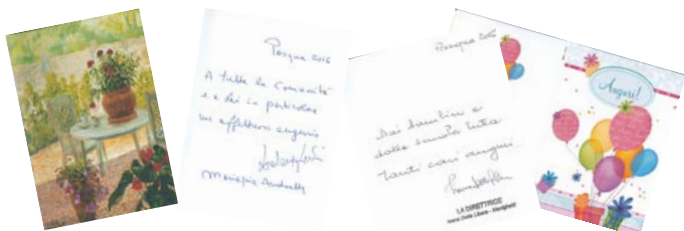 Pasqua 2016
A tutta la Comunità
e a Lei in particolare
un affettuoso augurio
Mariapia
Pasqua 2016
Dai bambini e
dalla scuola tutta
Tanti cari auguri.
LA DIRETTRICE
Auguri!